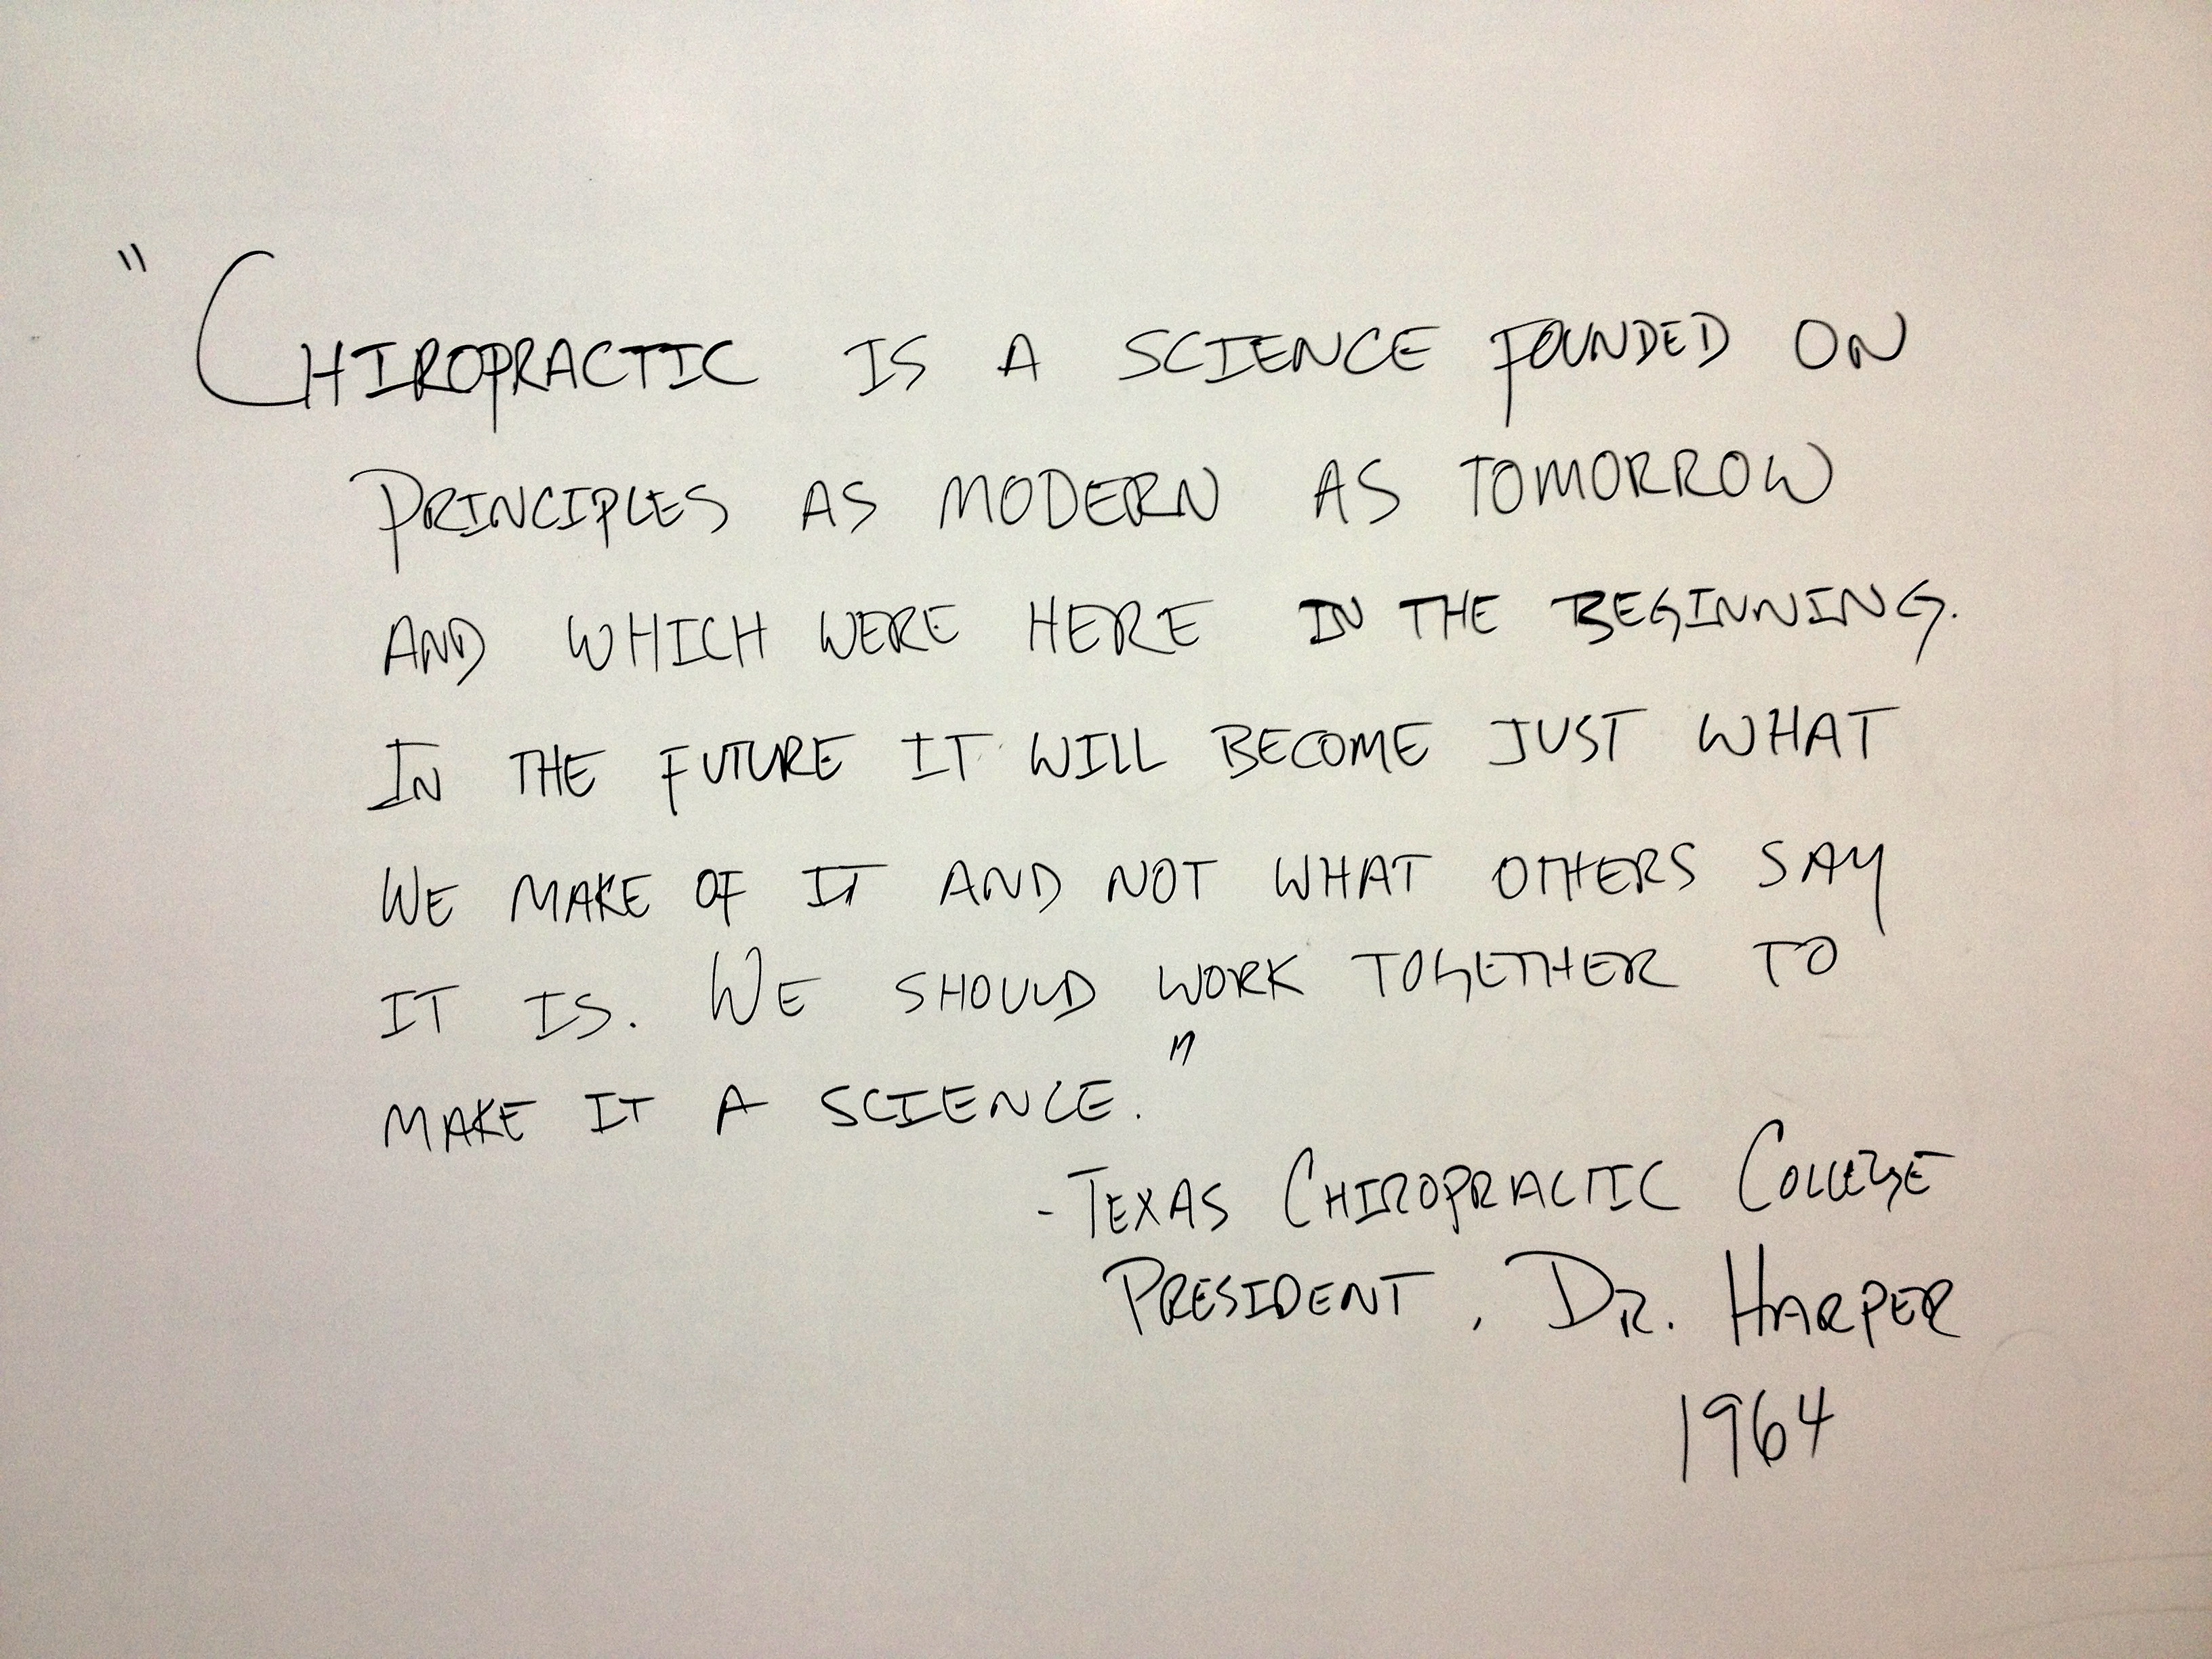 "CHIROPRACTIC IS A SCIENCE FOUNDED ON
PRINCIPLES AS MODERN AS TOMORROW
AND WHICH WERE HERE IN THE BEGINNING.
IN THE FUTURE IT WILL BECOME JUST WHAT
WE MAKE OF IT AND NOT WHAT OTHERS SAY
IT IS. WE SHOULD WORK TOGETHER TO
MAKE IT A SCIENCE."
-TEXAS CHIROPRACTIC COLLEGE
PRESIDENT, DR. HARPER
1964